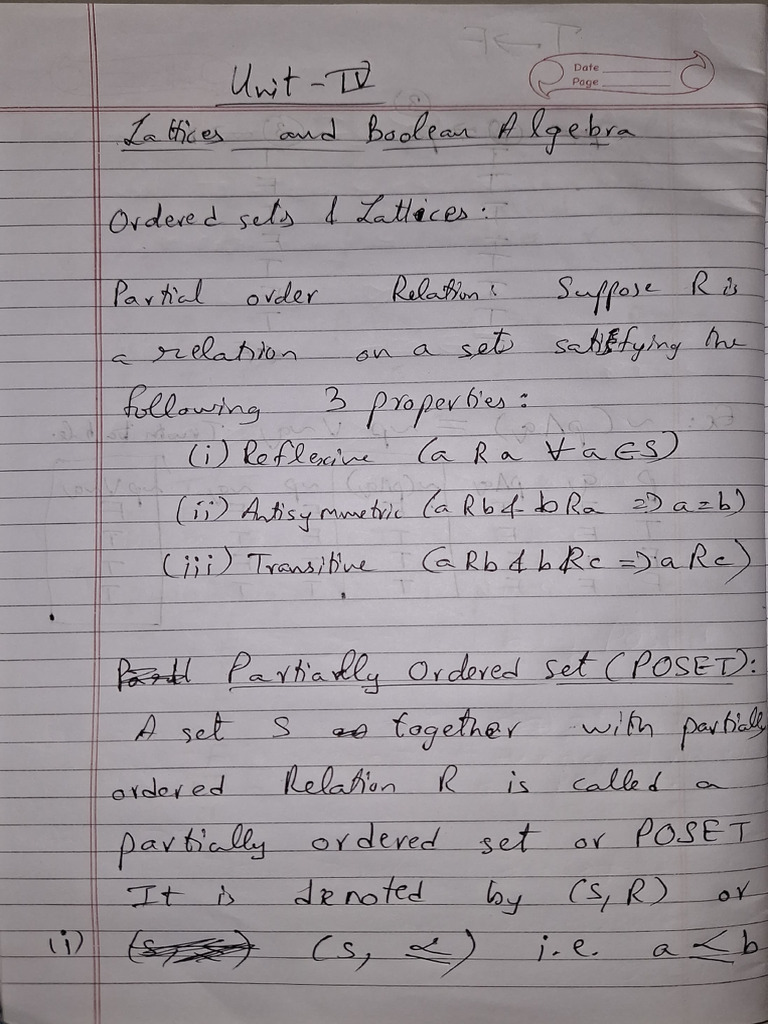 Unit - IV
Date
Page
Lattices and Boolean Algebra
Ordered sets & Lattices:
Partial order Relation: Suppose R is
a relation on a set satisfying the
following 3 properties:
(i) Reflexive (a R a ∀ a ∈ S)
(ii) Antisymmetric (a R b & b R a => a = b)
(iii) Transitive (a R b & b R c => a R c)
Partially Ordered set (POSET):
A set S together with partially
ordered Relation R is called a
partially ordered set or POSET
It is denoted by (S, R) or
(i) (S, ≤) i.e. a ≤ b